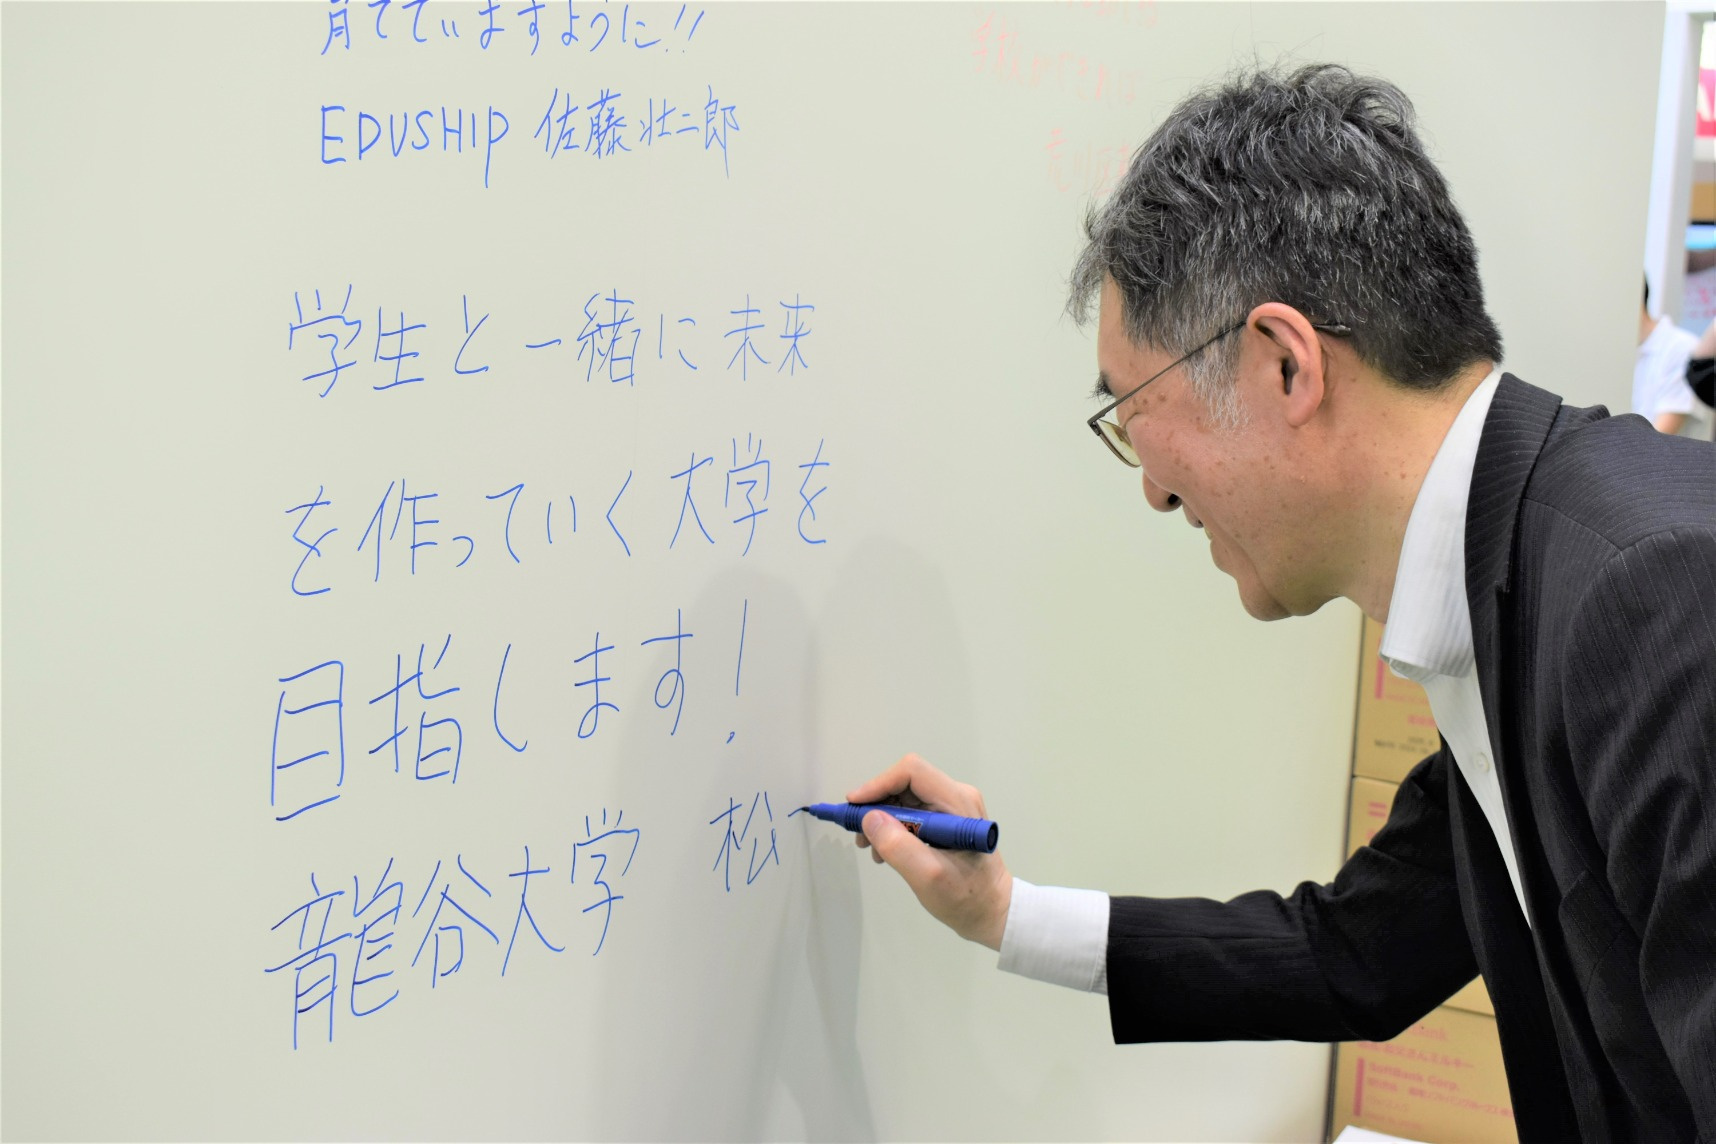 育てていますように!!
EDUSHIP 佐藤壮二郎
学生と一緒に未来
を作っていく大学を
目指します!
龍谷大学 松
学校ができれば
SoftBank Corp.